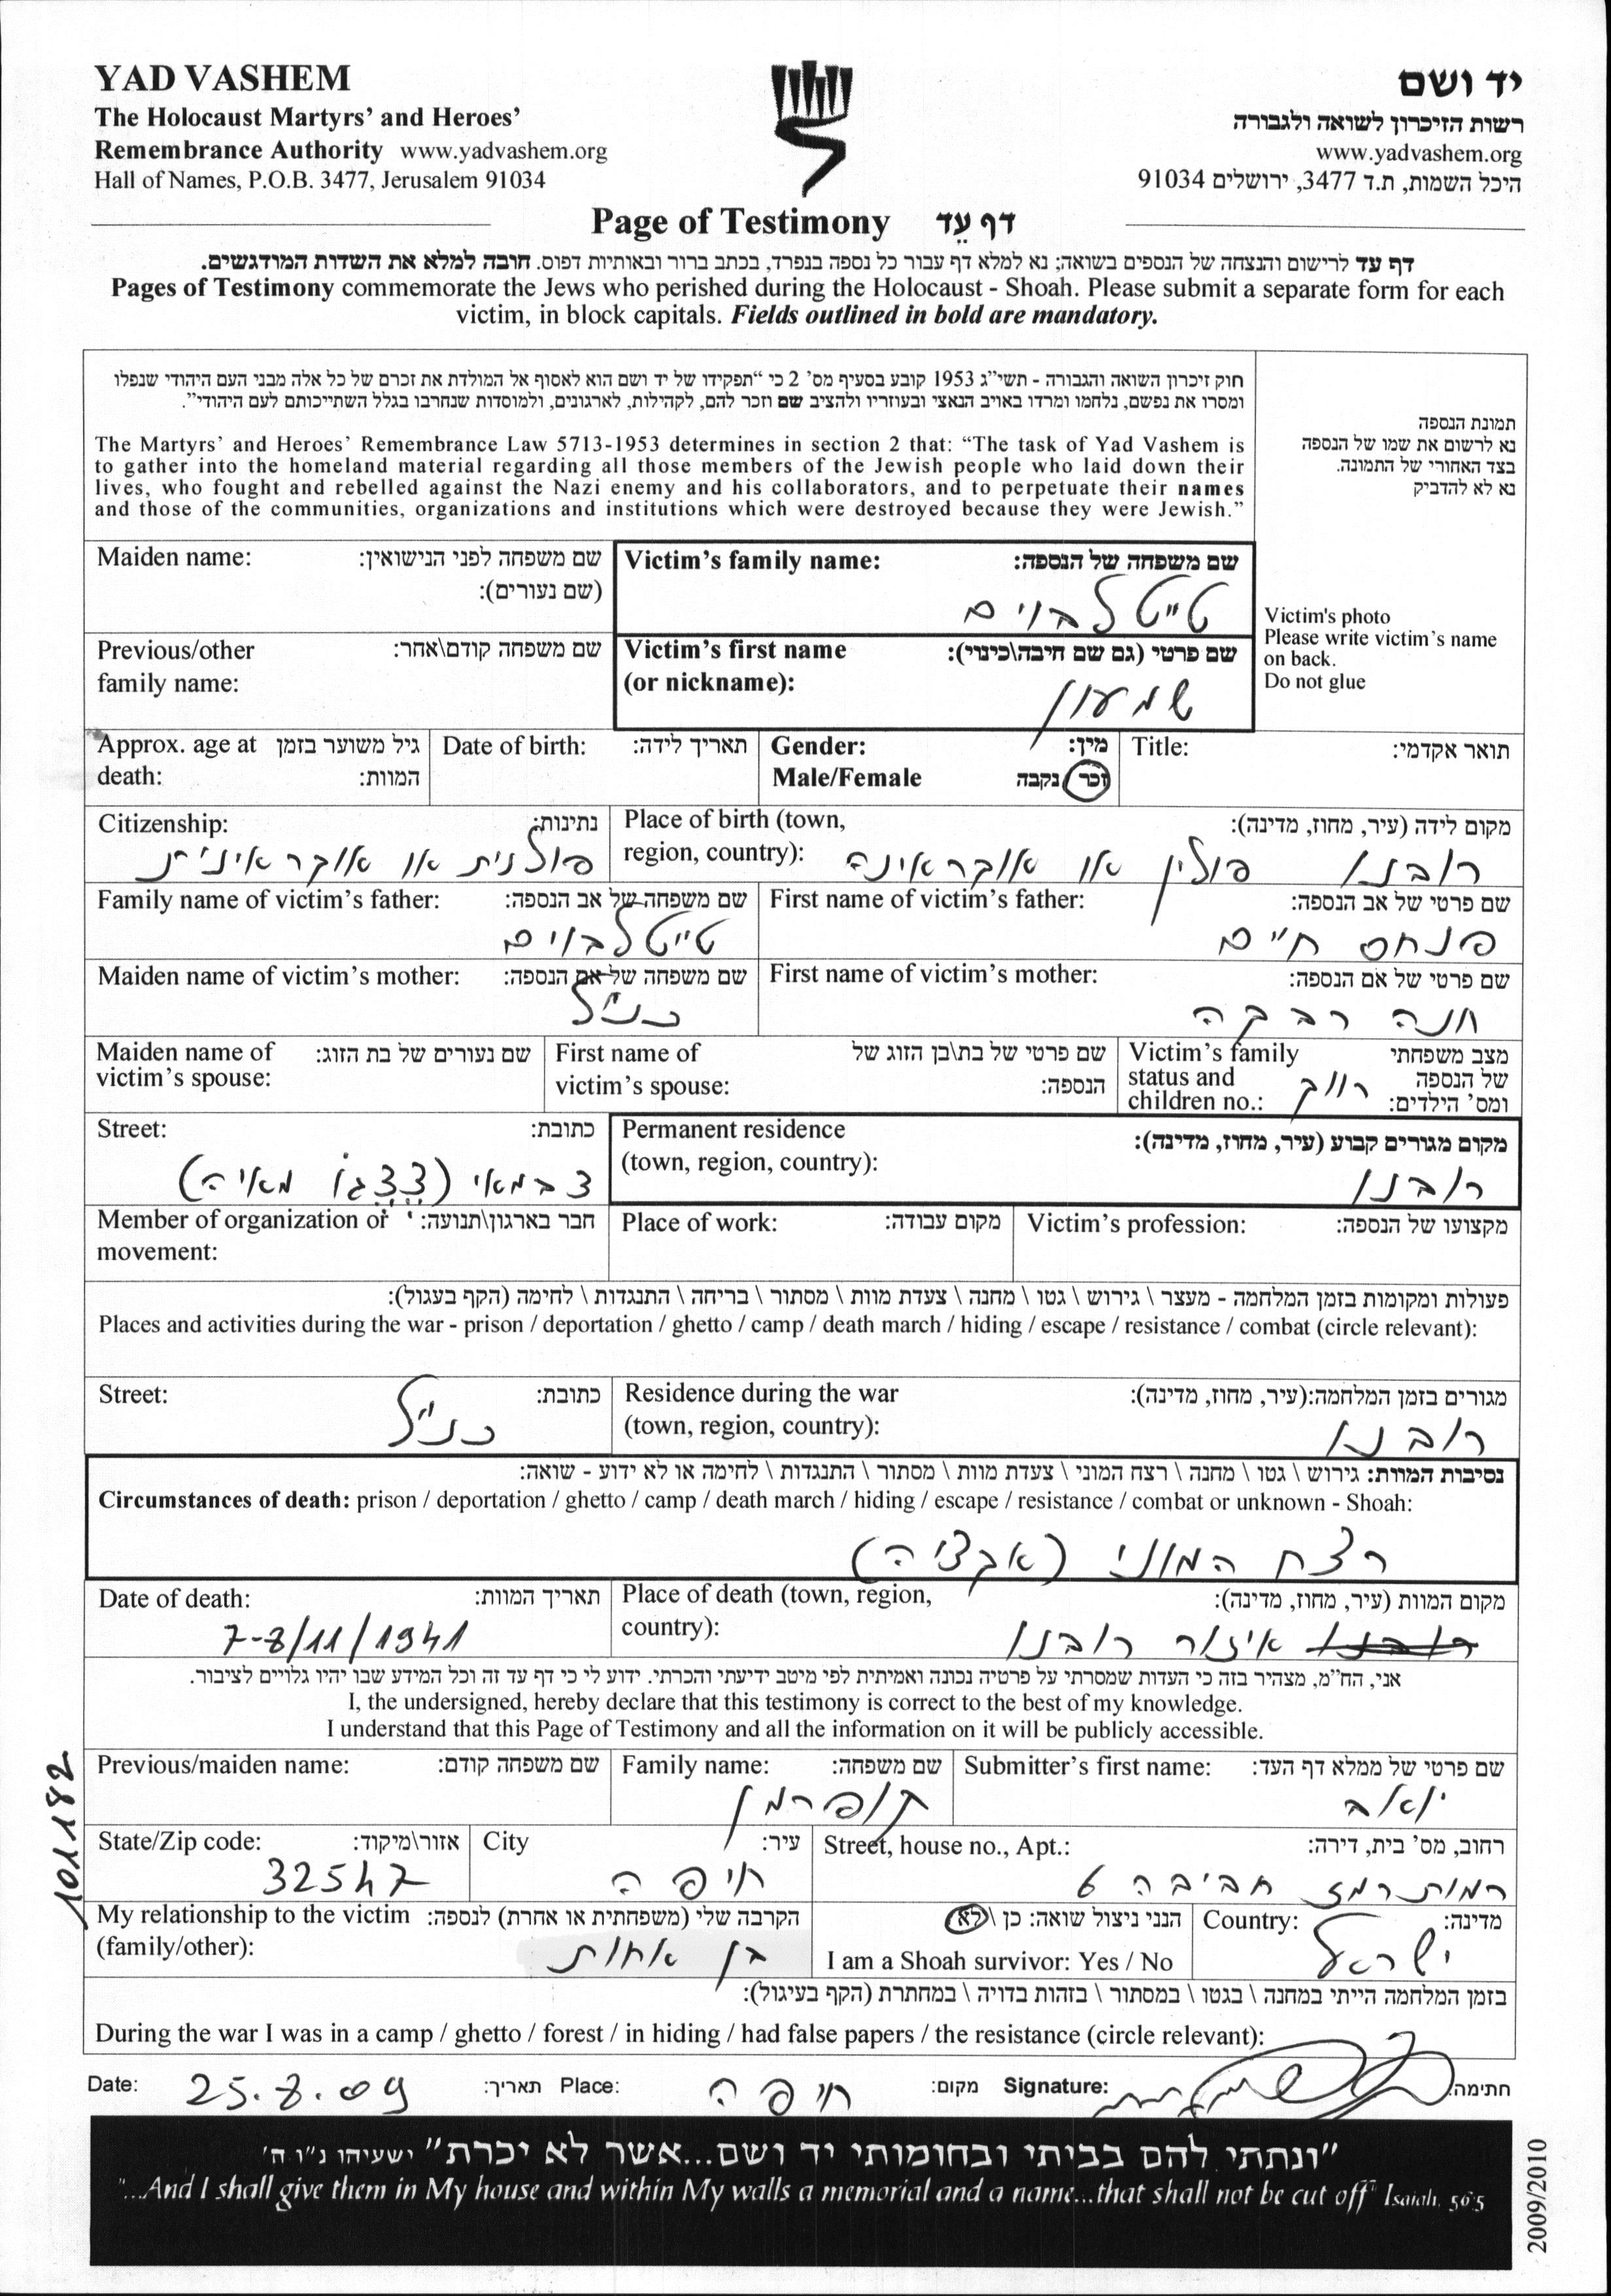 YAD VASHEM
The Holocaust Martyrs’ and Heroes’
Remembrance Authority www.yadvashem.org
Hall of Names, P.O.B. 3477, Jerusalem 91034
יד ושם
רשות הזיכרון לשואה ולגבורה
www.yadvashem.org
היכל השמות, ת.ד 3477, ירושלים 91034
Page of Testimony דף עֵד
דף עד לרישום והנצחה של הנספים בשואה; נא למלא דף עבור כל נספה בנפרד, בכתב ברור ובאותיות דפוס. חובה למלא את השדות המודגשים.
Pages of Testimony commemorate the Jews who perished during the Holocaust - Shoah. Please submit a separate form for each
victim, in block capitals. Fields outlined in bold are mandatory.
חוק זיכרון השואה והגבורה - תשי"ג 1953 קובע בסעיף מס' 2 כי "תפקידו של יד ושם הוא לאסוף אל המולדת את זכרם של כל אלה מבני העם היהודי שנפלו
ומסרו את נפשם, נלחמו ומרדו באויב הנאצי ובעוזריו ולהציב שם וזכר להם, לקהילות, לארגונים, ולמוסדות שנחרבו בגלל השתייכותם לעם היהודי".
The Martyrs’ and Heroes’ Remembrance Law 5713-1953 determines in section 2 that: “The task of Yad Vashem is
to gather into the homeland material regarding all those members of the Jewish people who laid down their
lives, who fought and rebelled against the Nazi enemy and his collaborators, and to perpetuate their names
and those of the communities, organizations and institutions which were destroyed because they were Jewish.”
תמונת הנספה
נא לרשום את שמו של הנספה
בצד האחורי של התמונה.
נא לא להדביק
Victim's photo
Please write victim’s name
on back.
Do not glue
Maiden name: שם משפחה לפני הנישואין:
(שם נעורים):
Victim’s family name: שם משפחה של הנספה:
טייטלבוים
Previous/other שם משפחה קודם\אחר:
family name:
Victim’s first name שם פרטי (גם שם חיבה\כינוי):
(or nickname):
שמעון
Approx. age at גיל משוער בזמן
death: המוות:
Date of birth: תאריך לידה:
Gender: מין:
Male/Female זכר/נקבה
Title: תואר אקדמי:
Citizenship: נתינות:
פולנית או אוקראינית
Place of birth (town, מקום לידה (עיר, מחוז, מדינה):
region, country): רובנו פולין או אוקראינה
Family name of victim’s father: שם משפחה של אב הנספה:
טייטלבוים
First name of victim’s father: שם פרטי של אב הנספה:
פנחס חיים
Maiden name of victim’s mother: שם משפחה של אם הנספה:
כנ"ל
First name of victim’s mother: שם פרטי של אם הנספה:
חנה רבקה
Maiden name of שם נעורים של בת הזוג:
victim’s spouse:
First name of שם פרטי של בת\בן הזוג של
victim’s spouse: הנספה:
Victim’s family מצב משפחתי
status and של הנספה
children no.: ומס' הילדים:
רווק
Street: כתובת:
3 במאי (
מאיה)
Permanent residence מקום מגורים קבוע (עיר, מחוז, מדינה):
(town, region, country):
רובנו
Member of organization or חבר בארגון\תנועה:
movement:
Place of work: מקום עבודה:
Victim’s profession: מקצועו של הנספה:
פעולות ומקומות בזמן המלחמה - מעצר \ גירוש \ גטו \ מחנה \ צעדת מוות \ מסתור \ בריחה \ התנגדות \ לחימה (הקף בעגול):
Places and activities during the war - prison / deportation / ghetto / camp / death march / hiding / escape / resistance / combat (circle relevant):
Street: כתובת:
כנ"ל
Residence during the war מגורים בזמן המלחמה:(עיר, מחוז, מדינה):
(town, region, country):
רובנו
נסיבות המוות: גירוש \ גטו \ מחנה \ רצח המוני \ צעדת מוות \ מסתור \ התנגדות \ לחימה או לא ידוע - שואה:
Circumstances of death: prison / deportation / ghetto / camp / death march / hiding / escape / resistance / combat or unknown - Shoah:
רצח המוני (אקציה)
Date of death: תאריך המוות:
7-8/11/1941
Place of death (town, region, מקום המוות (עיר, מחוז, מדינה):
country):
רובנו איזור רובנו
אני, הח"מ, מצהיר בזה כי העדות שמסרתי על פרטיה נכונה ואמיתית לפי מיטב ידיעתי והכרתי. ידוע לי כי דף עד זה וכל המידע שבו יהיו גלויים לציבור.
I, the undersigned, hereby declare that this testimony is correct to the best of my knowledge.
I understand that this Page of Testimony and all the information on it will be publicly accessible.
Previous/maiden name: שם משפחה קודם:
Family name: שם משפחה:
קופרמן
Submitter’s first name: שם פרטי של ממלא דף העד:
יואב
State/Zip code: אזור\מיקוד:
32547
City עיר:
חיפה
Street, house no., Apt.: רחוב, מס' בית, דירה:
רמות רמז חביבה 6
My relationship to the victim הקרבה שלי (משפחתית או אחרת) לנספה:
(family/other):
בן אחות
הנני ניצול שואה: כן \ לא
I am a Shoah survivor: Yes / No
Country: מדינה:
ישראל
בזמן המלחמה הייתי במחנה \ בגטו \ במסתור \ בזהות בדויה \ במחתרת (הקף בעיגול):
During the war I was in a camp / ghetto / forest / in hiding / had false papers / the resistance (circle relevant):
Date: 25.8.09 תאריך: Place: חיפה מקום: Signature: חתימה:
"ונתתי להם בביתי ובחומותי יד ושם...אשר לא יכרת" ישעיהו נ"ו ה'
"...And I shall give them in My house and within My walls a memorial and a name...that shall not be cut off" Isaiah, 56:5
101182
2009/2010